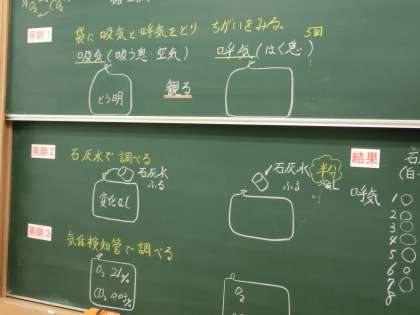 O₂ CO₂
実験1
袋に吸気と呼気をとり ちがいをみる。
5回
吸気(吸う息・空気)
呼気(はく息)
とう明
観る
実験2
石灰水で調べる
石灰水
ふる
変化なし
石灰水
ふる
半分
結果
呼気
1
2
3
4
5
6
7
8
実験3
気体検知管で調べる
O₂ 21%
CO₂ 0.03%
O₂